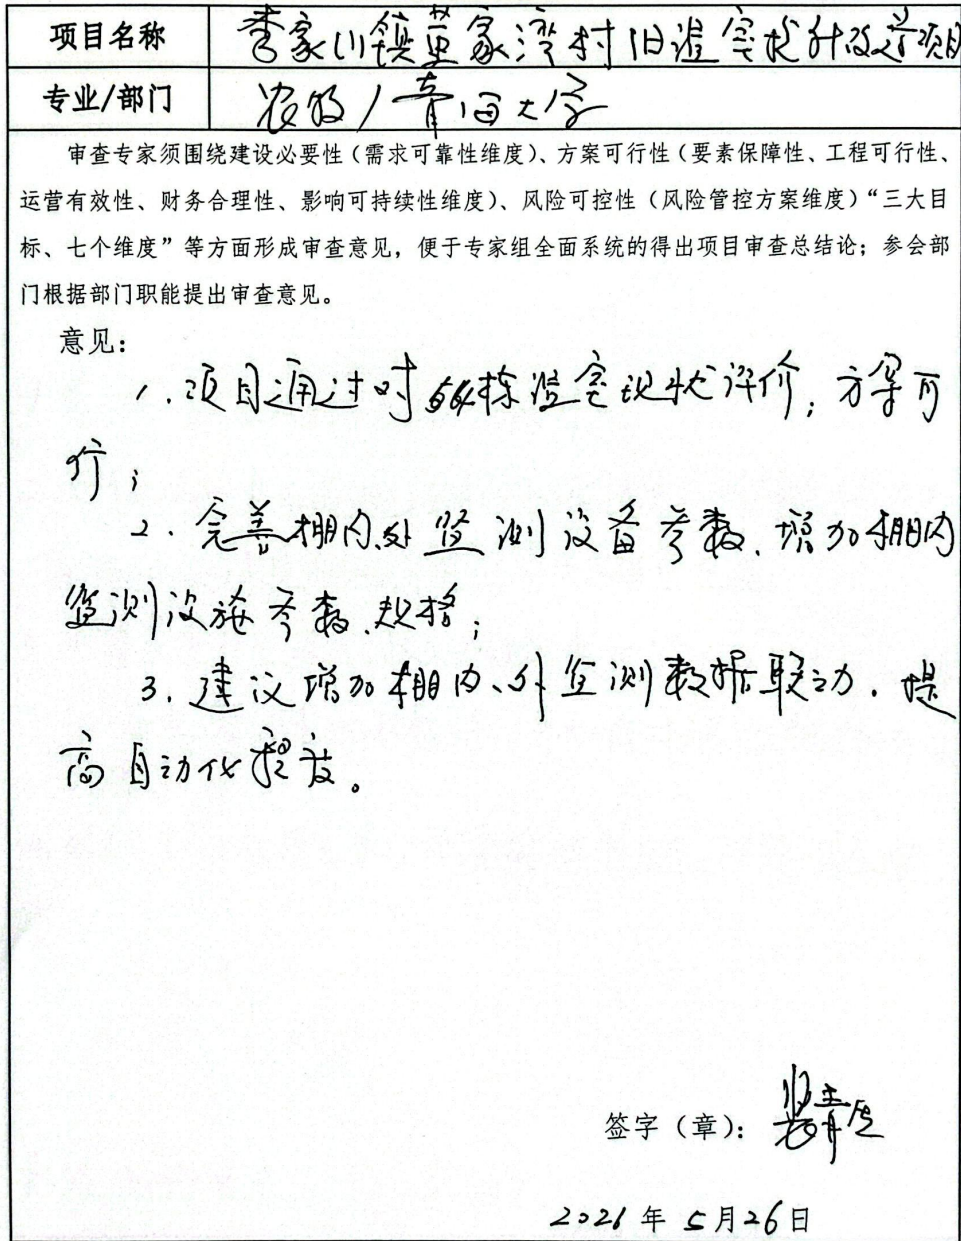 项目名称 李家山镇董家湾村旧温室提升改造项目
专业/部门 农牧/青海大学
审查专家须围绕建设必要性（需求可靠性维度）、方案可行性（要素保障性、工程可行性、
运营有效性、财务合理性、影响可持续性维度）、风险可控性（风险管控方案维度）“三大目
标、七个维度”等方面形成审查意见，便于专家组全面系统的得出项目审查总结论；参会部
门根据部门职能提出审查意见。
意见：
1. 项目通过对64栋温室现状评价，方案可
行；
2. 完善棚内、外监测设备参数、增加棚内
监测设施参数、规格；
3. 建议增加棚内、外监测数据联动，提
高自动化程度。
签字（章）：
2026年5月26日